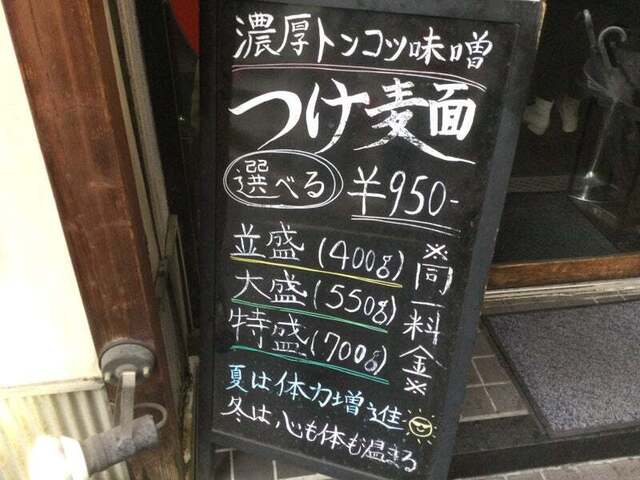 濃厚トンコツ味噌
つけ麦面
選べる ¥950-
並盛(400g)
大盛(550g)
特盛(700g)
※同一料金※
夏は体力増進
冬は、心も体も温まる